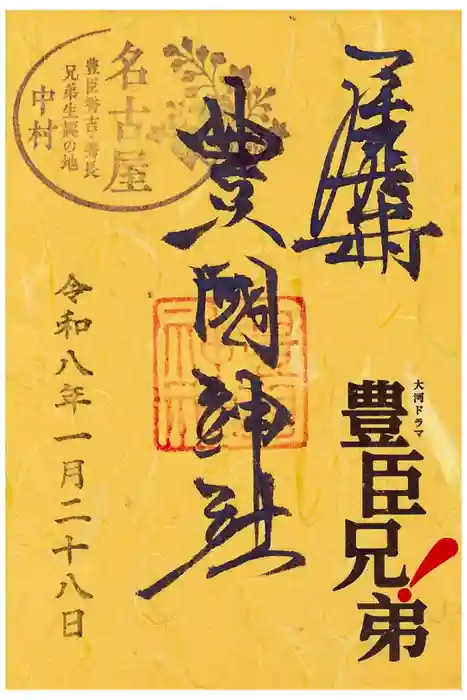 奉拝
大河ドラマ
豊臣兄弟!
豊國神社
名古屋
豊臣秀吉・秀長
兄弟生誕の地
中村
令和八年一月二十八日